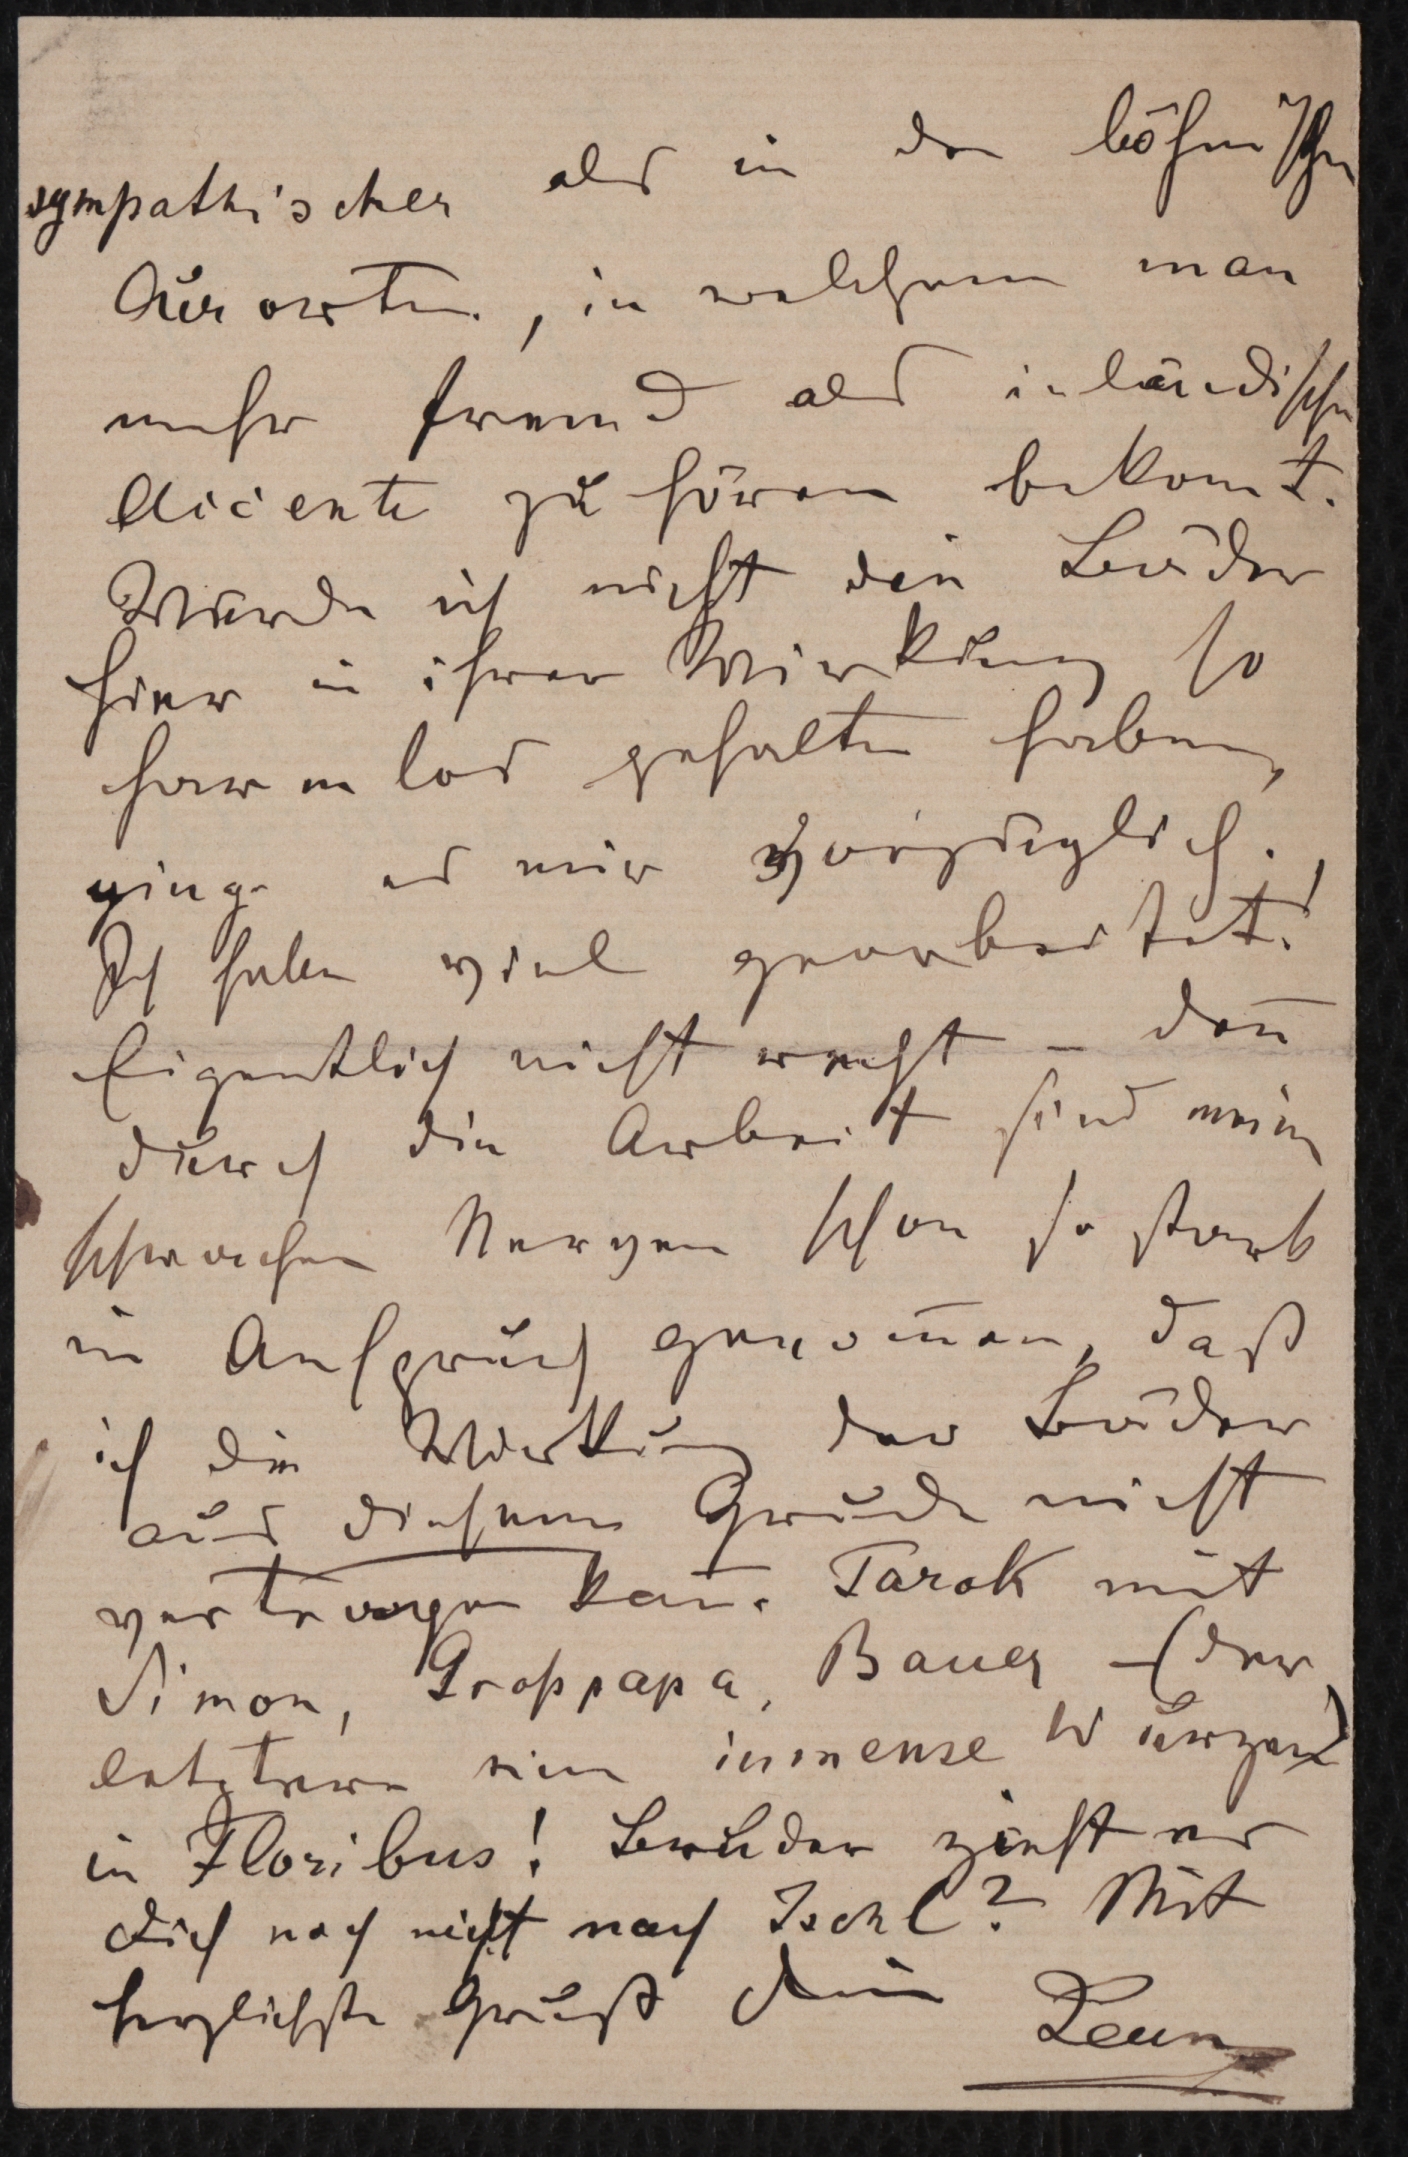 sympathischer als in den böhmischen
Curorten, in welchem man
mehr fremd als inländische
Accente zu hören bekomt.
Würde ich nicht die Bäder
hier in ihrer Wirkung so
harmlos gehalten haben,
ginge es mir vorzüglich.
Ich habe viel gearbeitet!
Eigentlich nicht recht – den̅
durch die Arbeit sind meine
schwachen Nerven schon so stark
in Anspruch geno̅men, daß
ich die Wirkung der Bäder
aus diesem Grunde nicht
vertragen kan̅. Tarok mit
Simon, Grosspapa, Bauer – (der
letztere eine immense Wurzen)
in Floribus! Bruder zieht es
Dich noch nicht nach Ischl? Mit
herzlichste Gruß Dein